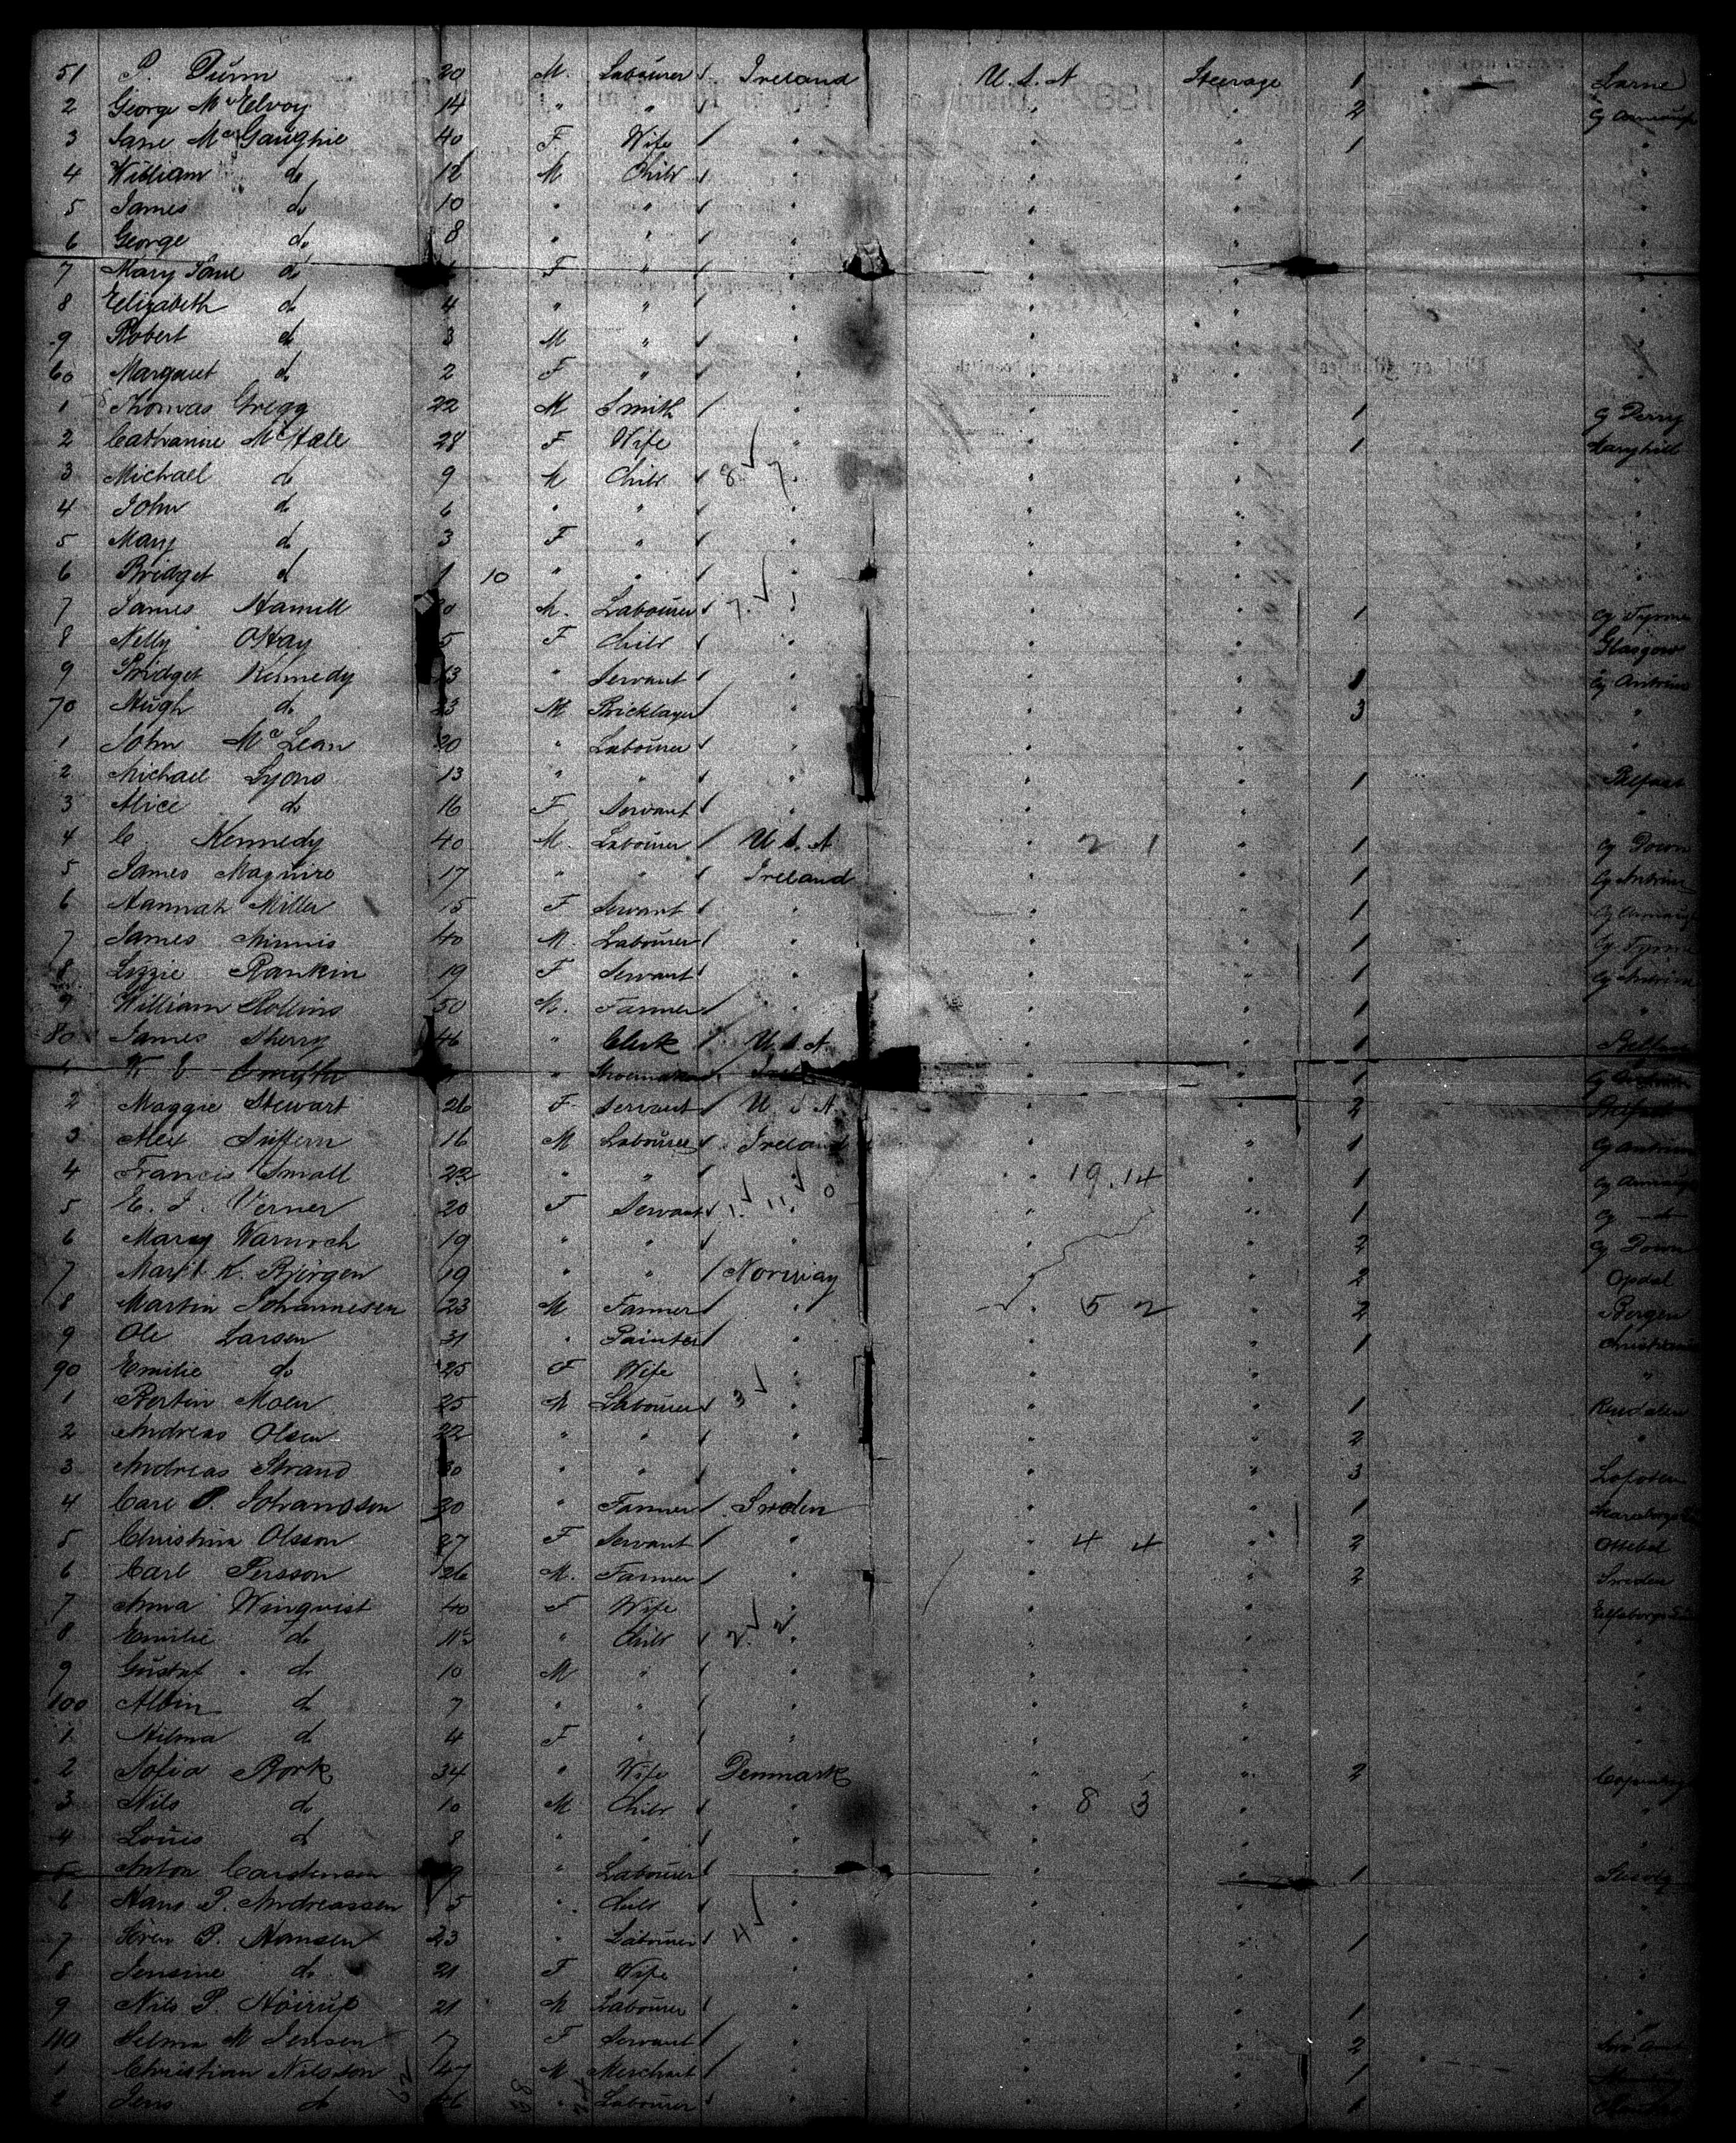 51 P. Dunn 20 M. Labourer Ireland U.S.A Steerage 1 Larne
2 George McElvoy 14 " " " " " 2 Cy Armagh
3 Jane McGaughie 40 F Wife " " " 1 "
4 William do 12 M Child " " " "
5 James do 10 " " " " " "
6 George do 8 " " " " " "
7 Mary Jane do F " " " " "
8 Elizabeth do 4 " " " " " "
9 Robert do 3 M " " " "
60 Margaret do 2 F " " " " "
1 Thomas Gregg 22 M Smith " " " 1 Cy Derry
2 Catharine McHale 28 F Wife " " " 1 Maryhill
3 Michael do 9 M Child 8 7 " " " "
4 John do 6 " " " " " "
5 Mary do 3 F " " " " "
6 Bridget do 10 " " " " " "
7 James Hamill M. Labourer 7 " " 1 Cy Tyrone
8 Nelly OHay 5 F Child " " " Glasgow
9 Bridget Kennedy 13 " Servant " " " 1 Cy Antrim
70 Hugh do 23 M Bricklayer " " " 3 "
1 John McLean 20 " Labourer " " " "
2 Michael Lyons 13 " " " " " 1 Belfast
3 Alice do 16 F Servant " " " "
4 C Kennedy 40 M. Labourer U.S.A " 2 1 " 1 Cy Down
5 James Maguire 17 " " Ireland " " 1 Cy Antrim
6 Hannah Miller 15 F Servant " " " 1 Cy Armagh
7 James Minnis 40 M. Labourer " " " 1 Cy Tyrone
8 Lizzie Rankin 19 F Servant " " " 1 Cy Antrim
9 William Rollins 50 M. Farmer " " " 1 "
80 James Sherry 46 " Clerk U.S.A. " " 1
W E Smyth " Shoemaker " " 1
2 Maggie Stewart 26 F Servant U.S.A " " 2 Belfast
3 Alex Suffern 16 M Labourer Ireland " " 1 Cy Antrim
4 Francis Small 22 " " " " 19.14 " 1 Cy Armagh
5 E. J. Verner 20 F Servant 1. 11 0 " " " 1 Cy do
6 Mary Warnock 19 " " " " " 2 Cy Down
7 Marit K. Bjørgen 19 " " Norway " " 2 Opdal
8 Martin Johannesen 23 M Farmer " " 5 2 " 2 Bergen
9 Ole Larsen 31 " Painter " " " 1 Christiania
90 Emilie do 25 F Wife " " " "
1 Bertin Moen 25 M Labourer 3 " " " 1 Rendalen
2 Andreas Olsen 22 " " " " " 2 "
3 Andreas Strand 30 " " " " " 3 Lofoten
4 Carl P. Johansson 20 " Farmer Sweden " " 1
5 Christina Olsson 27 F Servant " " 4 4 " 2
6 Carl Persson 26 M. Farmer " " " 2 Sweden
7 Anna Winqvist 40 F Wife " " "
8 Emilie do 11½ " Child 2 2 " " " "
9 Gustaf do 10 M " " " " "
100 Albin do 7 " " " " " "
1 Hilma do 4 F " " " " "
2 Sofia Bork 34 " Wife Denmark " " 2
3 Nils do 10 M Child " " 8 3 " "
4 Louis do 8 " " " " " "
Anton Carstensen " Labourer " " " 1
6 Hans P. Andreassen 5 " Child " " " "
7 Søren P. Hansen 23 " Labourer 4 " " " 1 "
8 Jensine do 21 F Wife " " " "
9 Nils P. Høirup 21 M Labourer " " " 1 "
110 Selma M Jensen 17 F Servant " " " 2
1 Christian Nilsson 47 M Merchant " " " 1
2 Jens do 46 " Labourer " " " 1